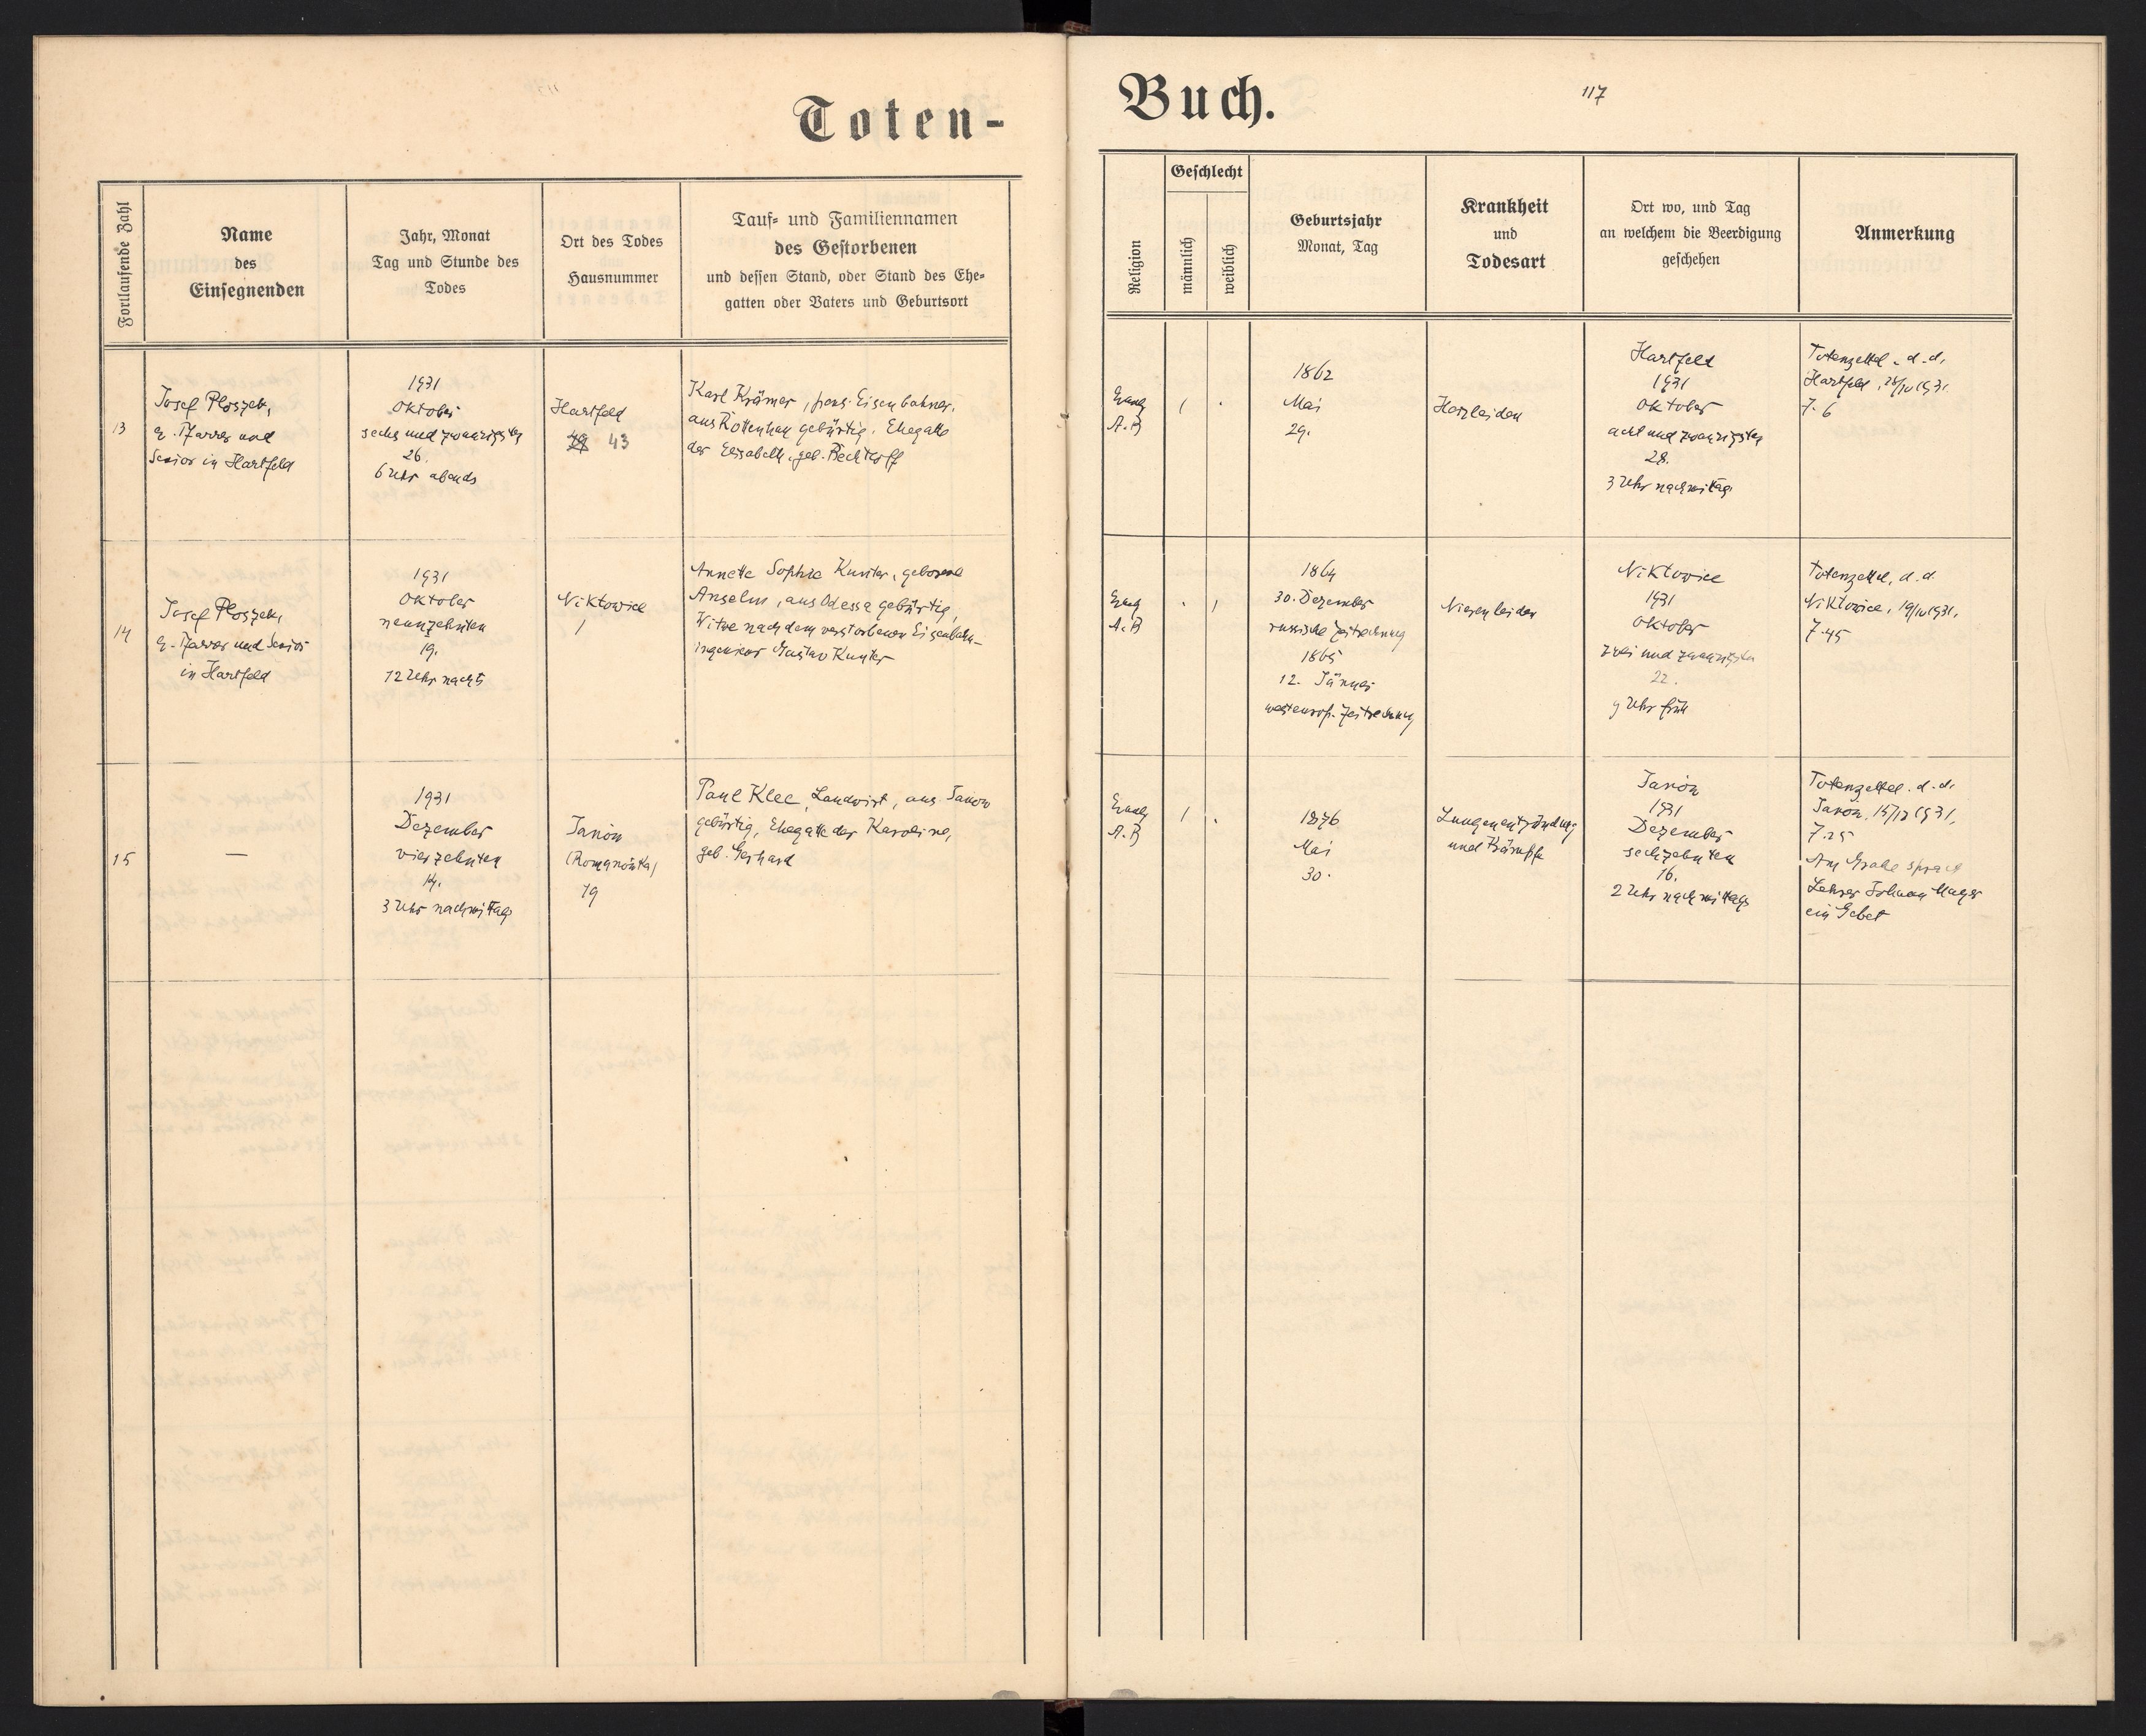 Toten-
Buch.
117
Fortlaufende Zahl
Name
des
Einsegnenden
Jahr, Monat
Tag und Stunde des
Todes
Ort des Todes
Hausnummer
Tauf- und Familiennamen
des Gestorbenen
und dessen Stand, oder Stand des Ehe-
gatten oder Vaters und Geburtsort
Religion
Geschlecht
männlich
weiblich
Geburtsjahr
Monat, Tag
Krankheit
und
Todesart
Ort wo, und Tag
an welchem die Beerdigung
geschehen
Anmerkung
13
Josef Ploszek,
e. Pfarrer und
Senior in Hartfeld
1931
Oktober
sechs und zwanzigsten
26.
6 Uhr abends
Hartfeld
43
Karl Krämer, pens. Eisenbahner,
aus Rottenhan gebürtig. Ehegatte
der Elisabeth, geb. Bechtloff
Evang
A.B
1
.
1862
Mai
29.
Herzleiden
Hartfeld
1931
Oktober
acht und zwanzigsten
28.
3 Uhr nachmittag
Totenzettel. d. d.
Hartfeld, 28/10 1931.
7. 6
14
Josef Ploszek,
e. Pfarrer und Senior
in Hartfeld
1931
Oktober
neunzehnten
19.
12 Uhr nachts
Niktowice
1
Annette Sophie Kunter, geborene
Anselm, aus Odessa gebürtig,
Witwe nach dem verstorbenen Eisenbahn-
ingenieur Gustav Kunter
Evang
A.B
.
1
1864
30. Dezember
russische Zeitrechnung
1865
12. Jänner
westeurop. Zeitrechnung
Nierenleiden
Niktowice
1931
Oktober
zwei und zwanzigsten
22.
9 Uhr früh
Totenzettel, d. d.
Niktowice, 19/10 1931.
7.45
15
—
1931
Dezember
vierzehnten
14.
3 Uhr nachmittags
Janów
(Romanówka)
19
Paul Klee, Landwirt, aus Janow
gebürtig, Ehegatte der Karoline,
geb. Gerhard
Evang
A.B
1
.
1876
Mai
30.
Lungenentzündung
und Krämpfe
Janów
1931
Dezember
sechzehnten
16.
2 Uhr nachmittags
Totenzettel. d. d.
Janów, 15/12 1931,
7.25
Am Grabe sprach
Lehrer Johann Mayer
ein Gebet